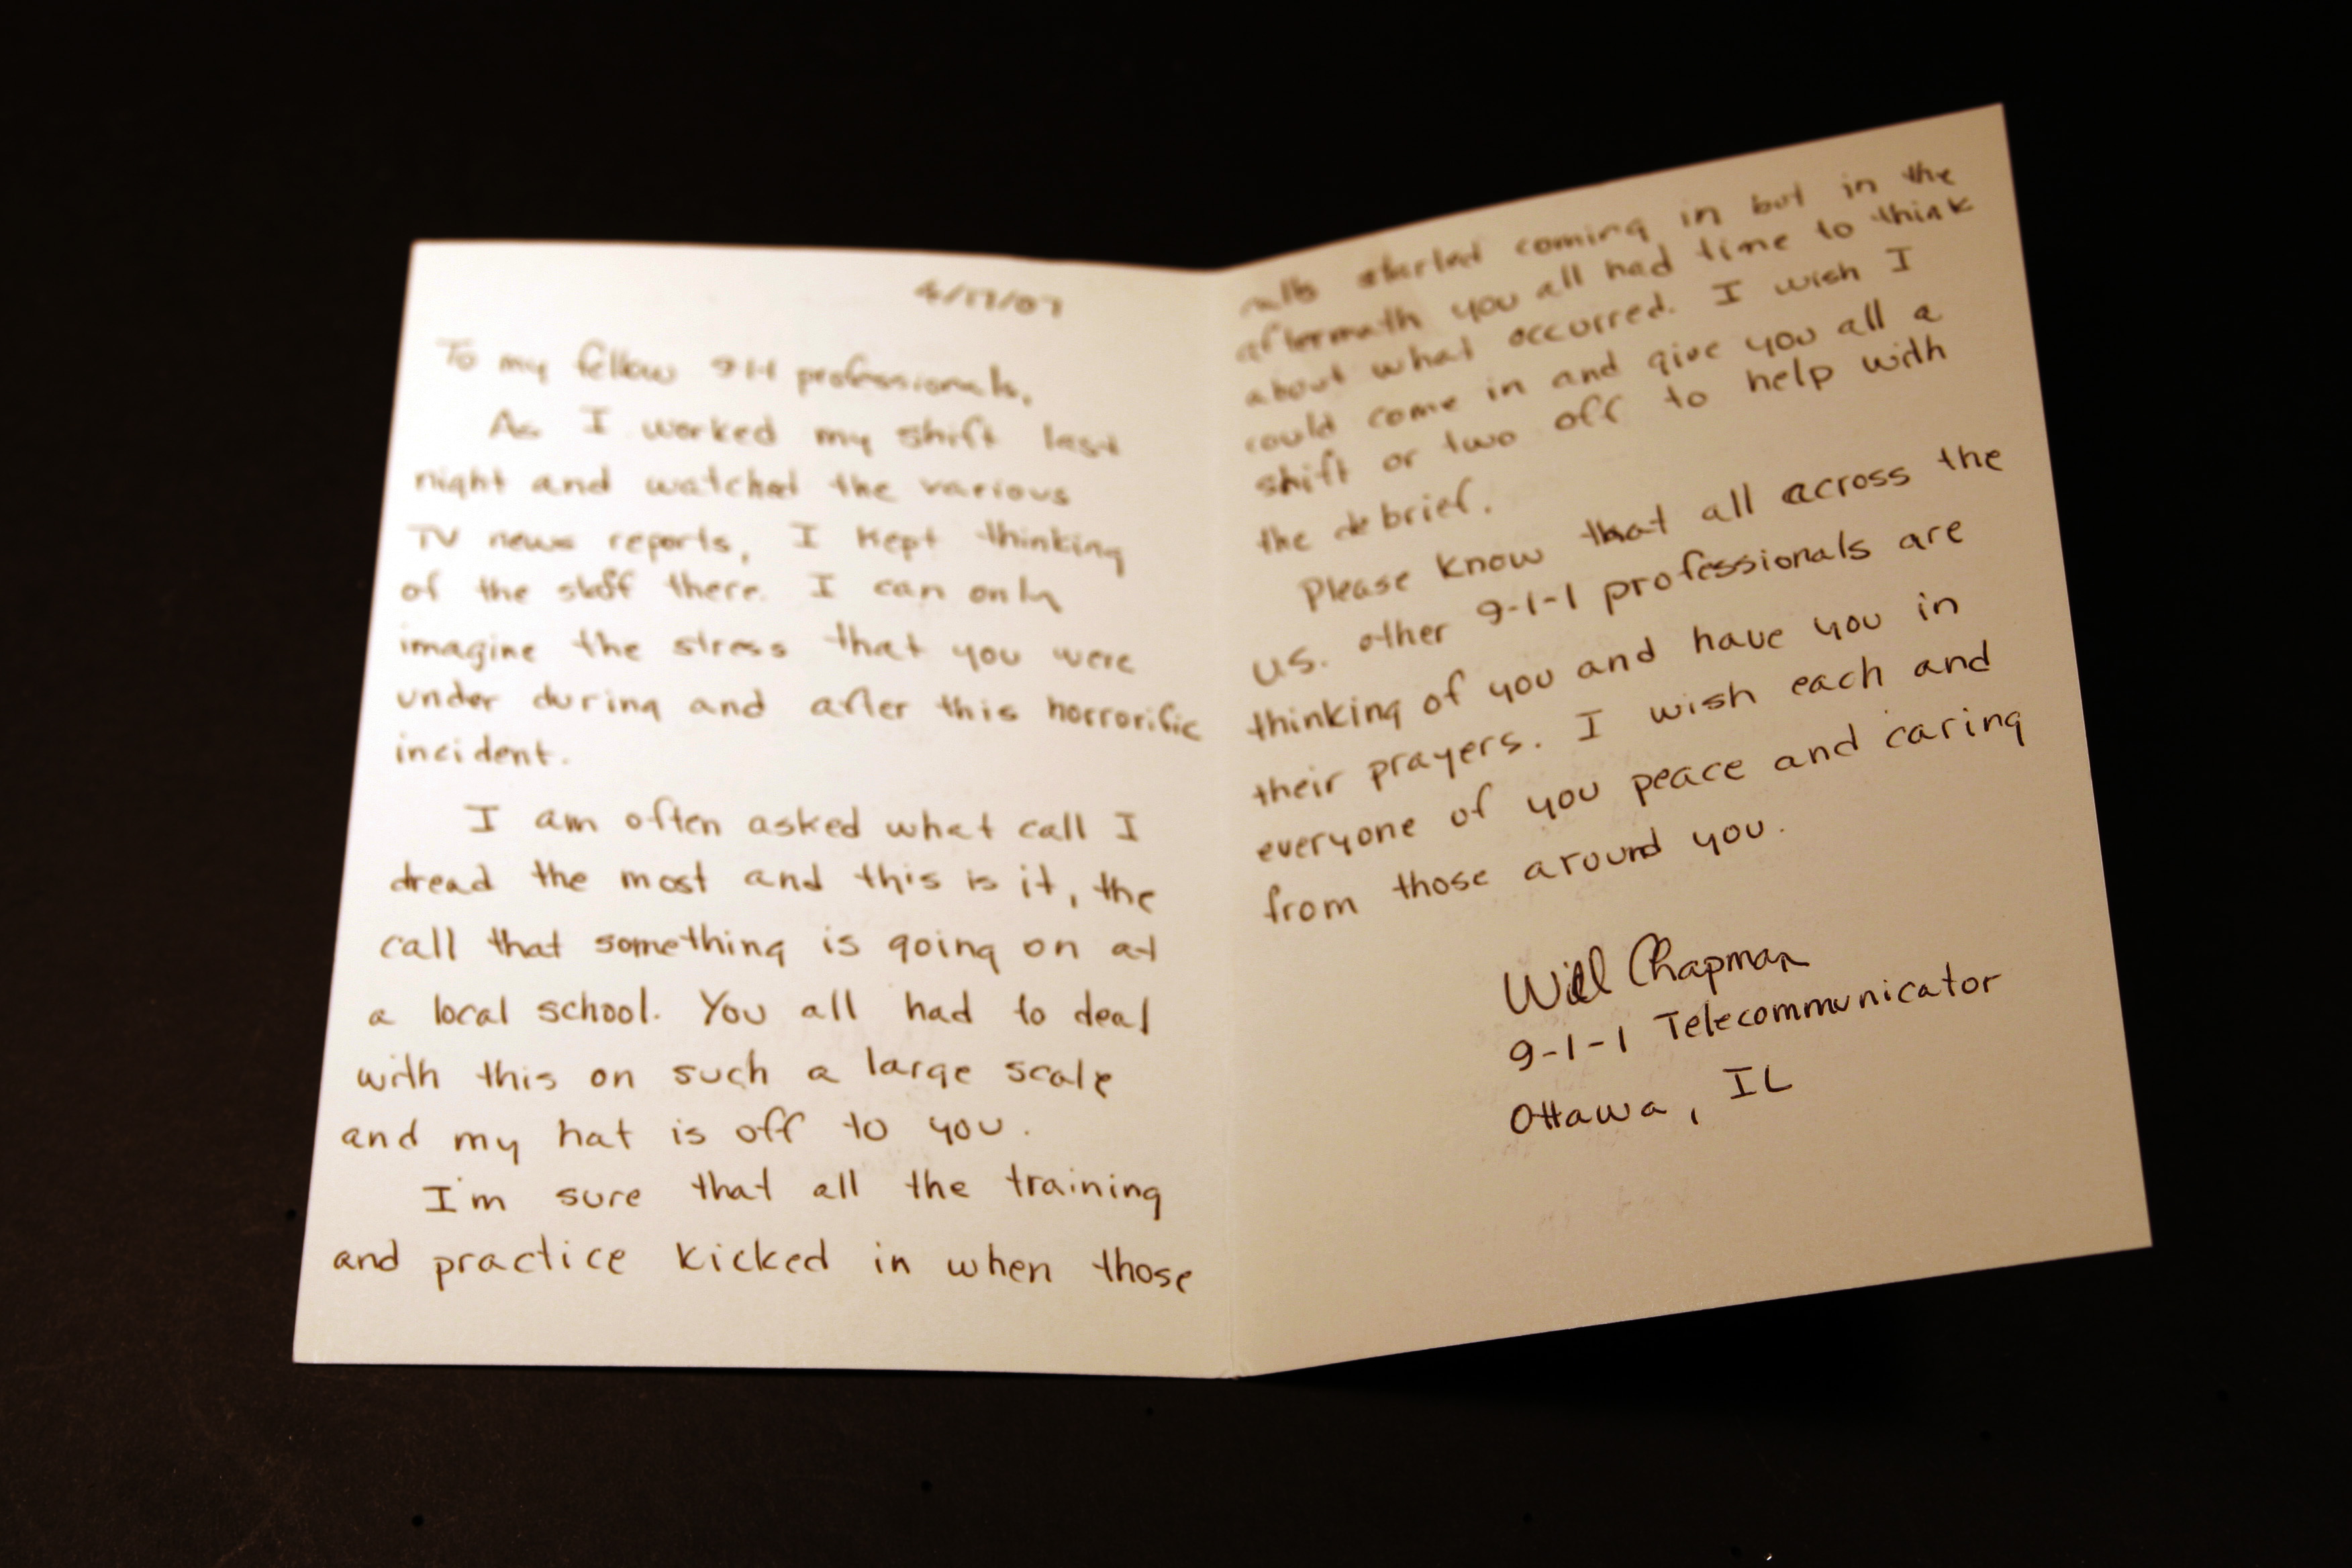 4/17/07
To my fellow 911 professionals,
As I worked my shift last
night and watched the various
TV news reports, I kept thinking
of the staff there. I can only
imagine the stress that you were
under during and after this horrorific
incident.
I am often asked what call I
dread the most and this is it, the
call that something is going on at
a local school. You all had to deal
with this on such a large scale
and my hat is off to you.
I'm sure that all the training
and practice kicked in when those
calls started coming in but in the
aftermath you all had time to think
about what occurred. I wish I
could come in and give you all a
shift or two off to help with
the debrief.
Please know that all across the
US. other 9-1-1 professionals are
thinking of you and have you in
their prayers. I wish each and
everyone of you peace and caring
from those around you.
Will Chapman
9-1-1 Telecommunicator
Ottawa, IL